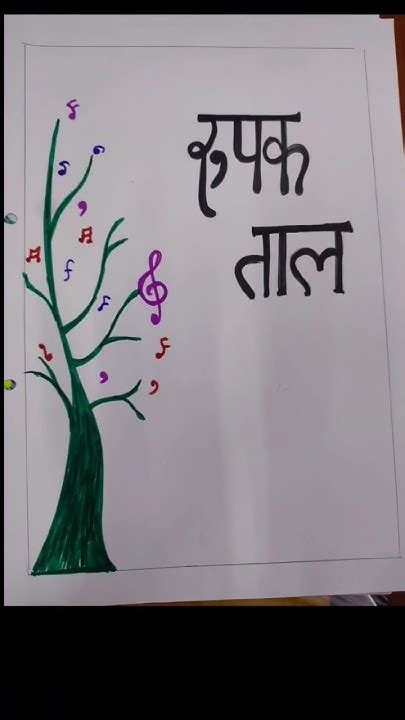 रुपक
ताल